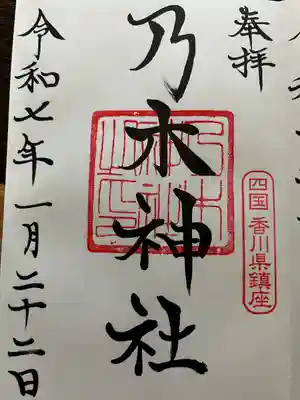 奉拝
四国 香川県鎮座
乃木神社
令和七年一月二十二日